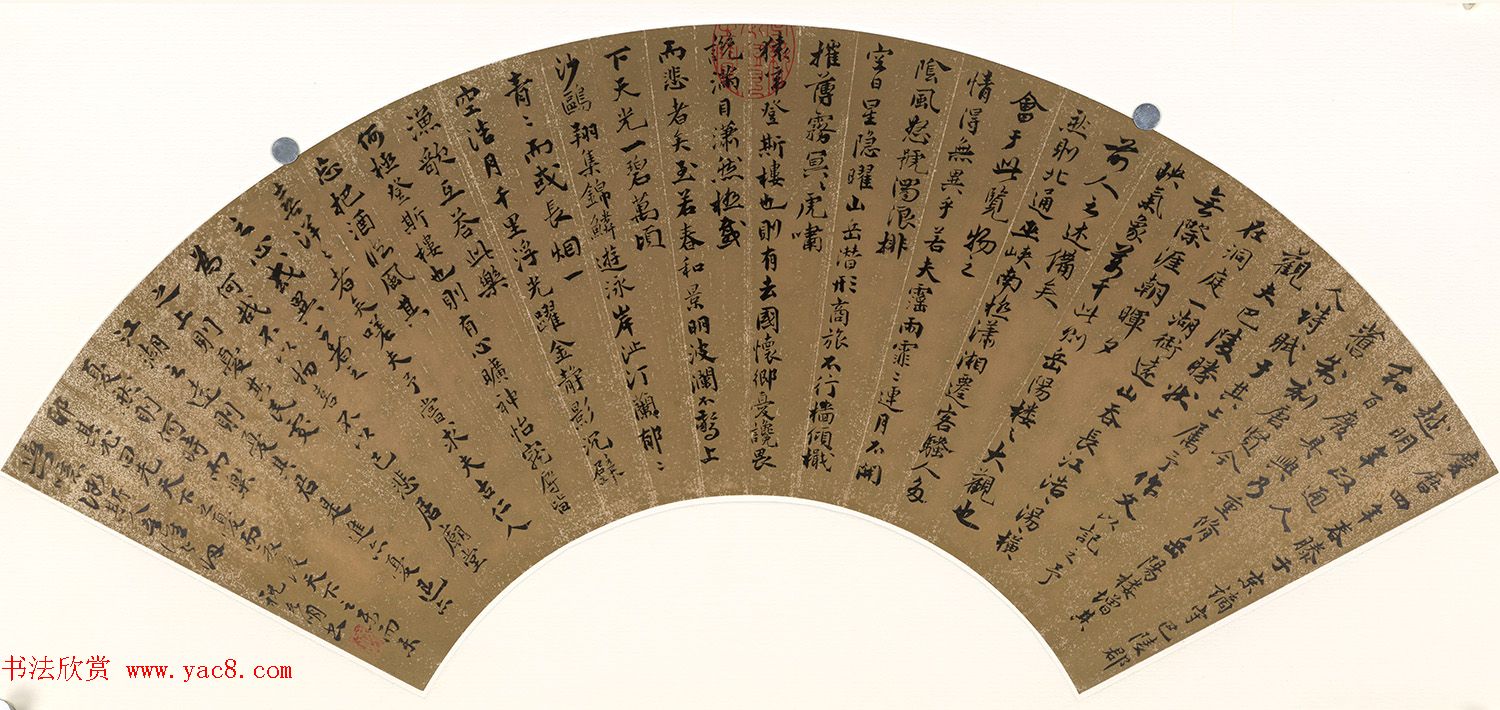 慶曆四年春滕子京謫守巴陵郡
越明年政通人
和百廢具興乃重脩岳陽樓增其
舊制刻唐賢今
人詩賦于其上屬予作文以記之予
觀夫巴陵勝狀
在洞庭一湖銜遠山吞長江浩湯橫
無際涯朝暉夕
映氣象萬千此則岳陽樓之大觀也
前人之述備矣
然則北通巫峽南極瀟湘遷客騷人多
會于此覽物之
情得無異乎若夫霪雨霏〻連月不開
陰風怒號濁浪排
空日星隱曜山岳潛形商旅不行檣傾檝
摧薄霧冥〻虎嘯
猿啼登斯樓也則有去國懷鄉憂讒畏
譏滿目瀟然極感
而悲者矣至若春和景明波瀾不驚上
下天光一碧萬頃
沙鷗翔集錦鱗遊泳岸沚汀蘭郁〻
青〻而或長烟一
空浩月千里浮光躍金靜影沉璧
漁歌互答此樂
何極登斯樓也則有心曠神怡寵辱皆
忘把酒臨風其
喜洋〻者矣嗟夫予嘗求夫古仁人
之心或異二者之
為何哉不以物喜不以己悲居廟堂
之上則憂其民處
江湖之遠則憂其君是進亦憂退亦
憂然則何時而樂
耶其必曰先天下之憂而憂後天下之樂而樂
噫微斯人吾誰與歸
祝允明書
书法欣赏 www.yac8.com